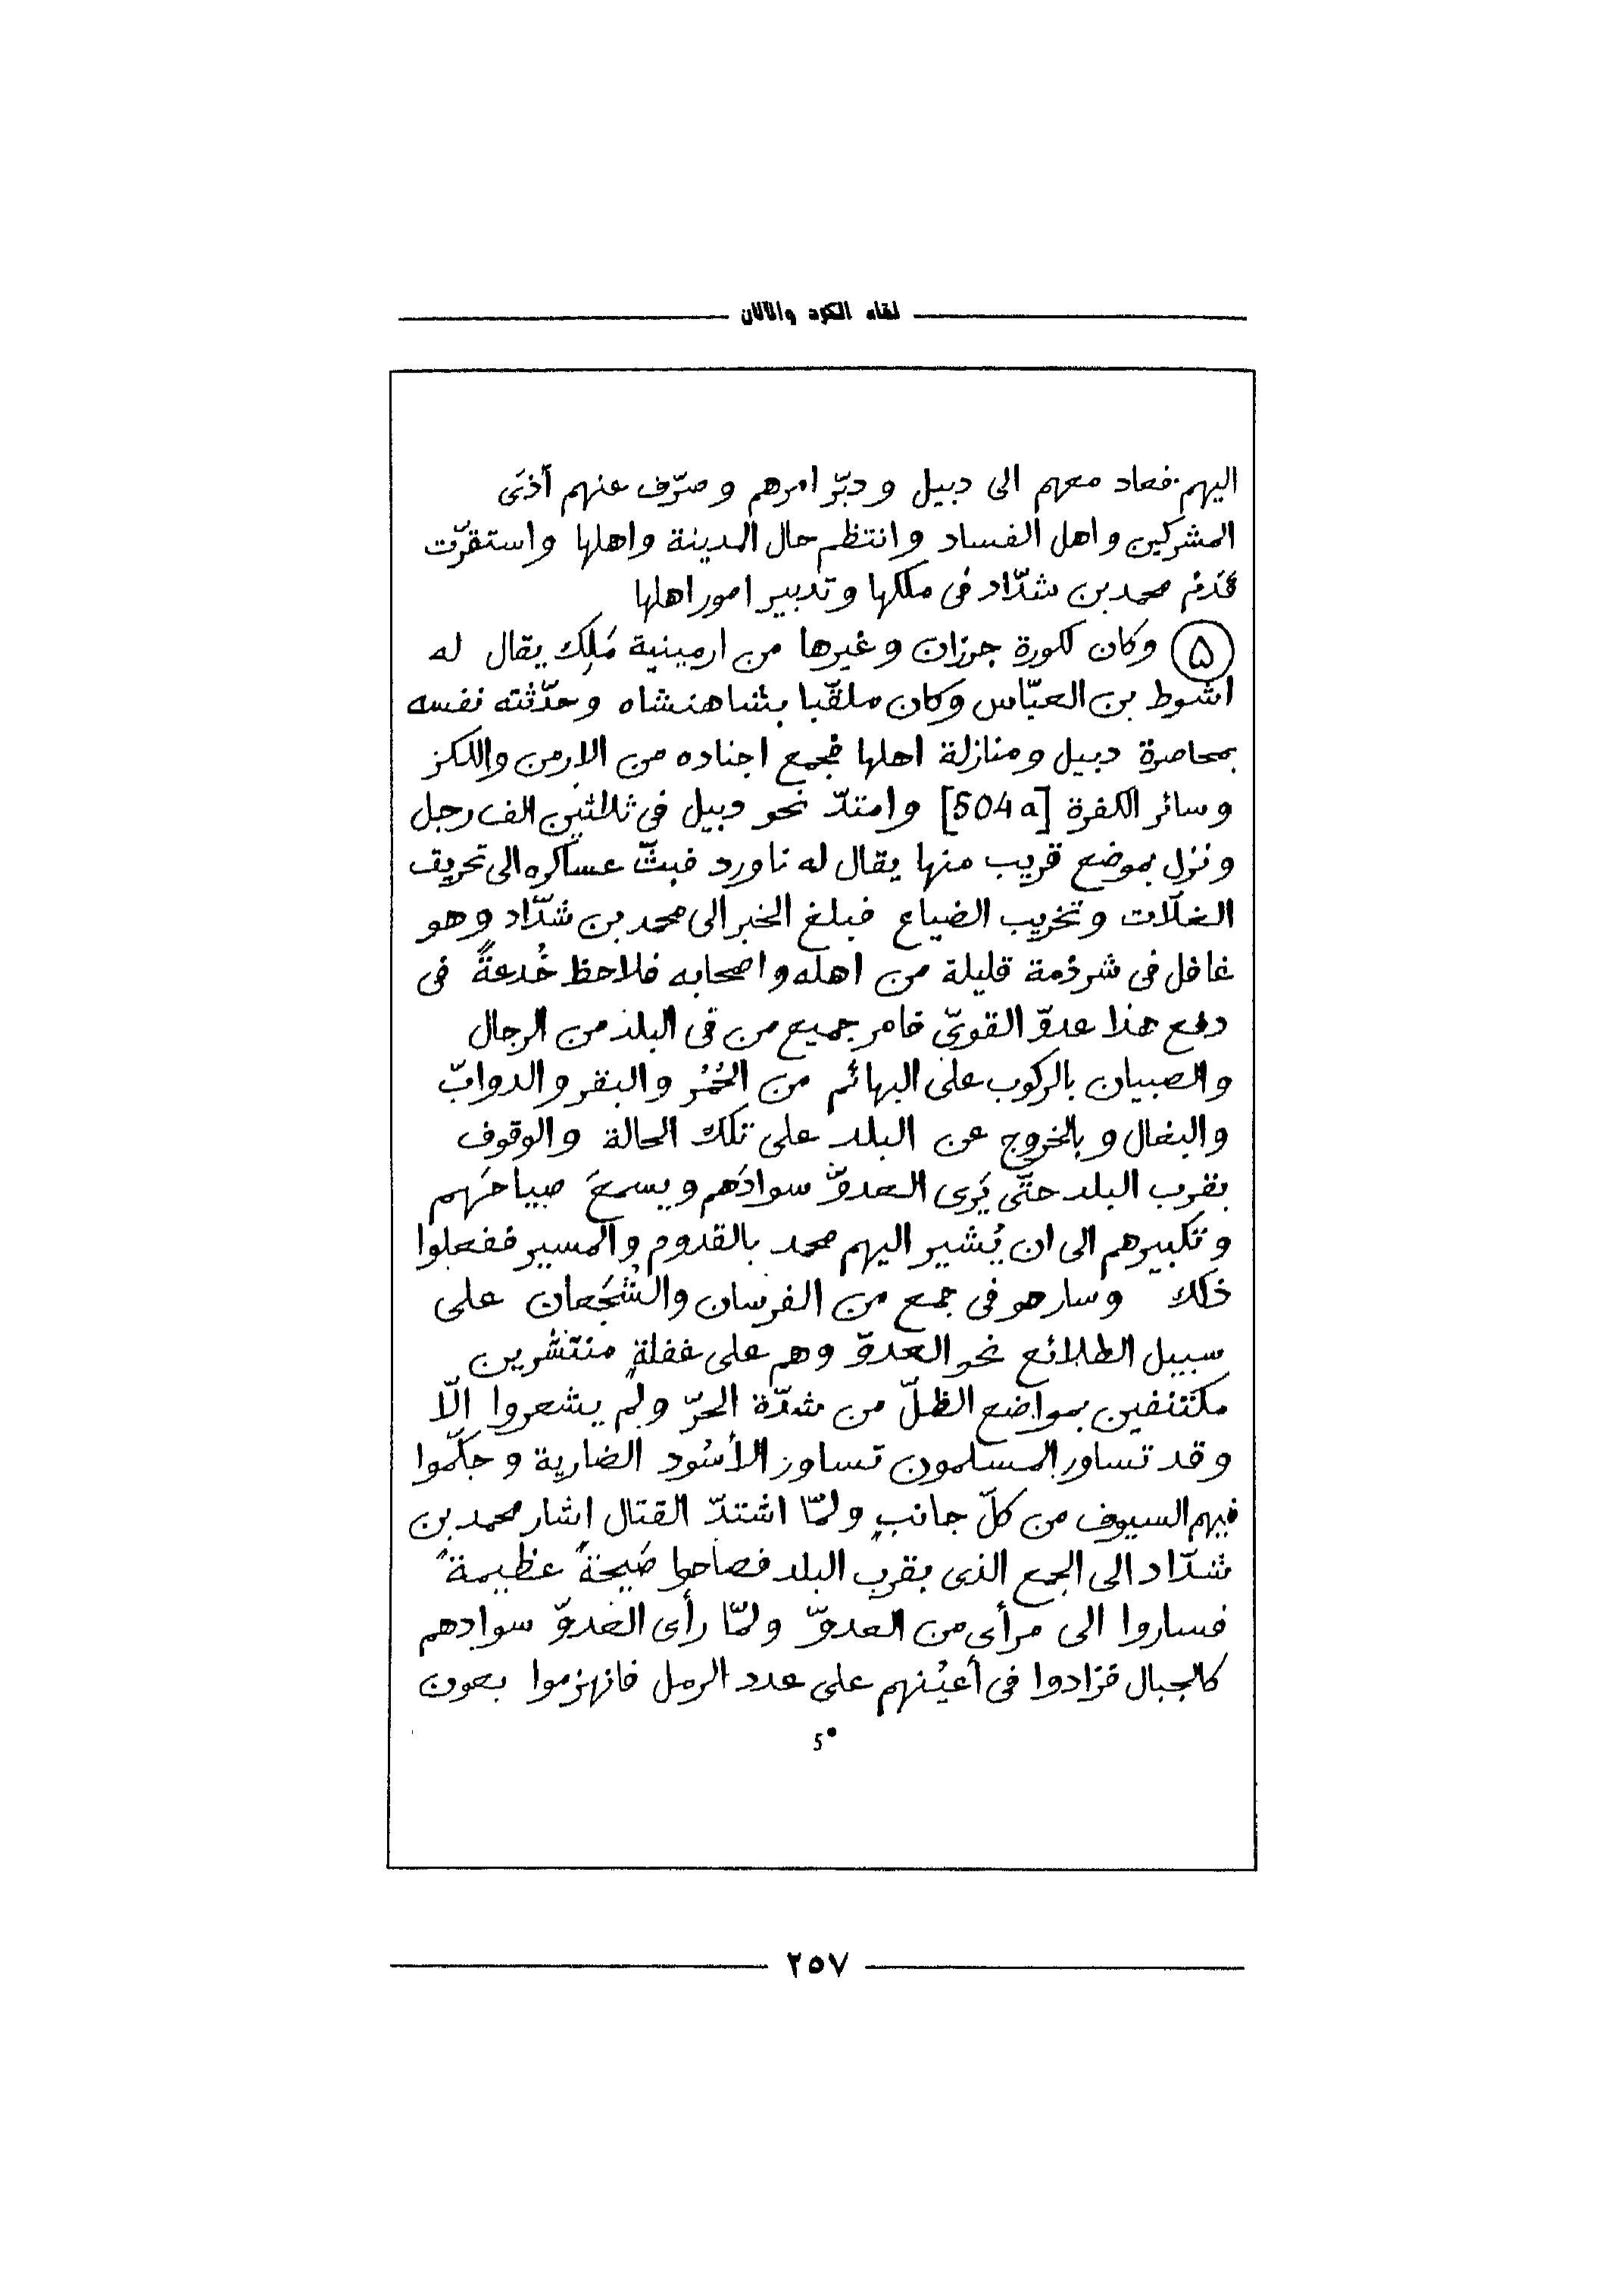 لقاء الكرد والآلان
اليهم فعاد معهم الى دبيل و دبّر امرهم و صرّف عنهم أذى
المشركين و اهل الفساد و انتظم حال المدينة واهلها واستقرّت
قدم محمد بن شدّاد فى ملكها و تدبير امور اهلها
۵ وكان لكورة جرزان و غيرها من ارمينية مَلِك يقال له
اشوط بن العبّاس وكان ملقّبا بشاهنشاه وحدّثته نفسه
بمحاصرة دبيل ومنازلة اهلها فجمع اجناده من الارمن واللكز
وسائر الكفرة [504a] وامتدّ نحو دبيل فى ثلثين الف رجل
ونزل بموضع قريب منها يقال له ناورد فبثّ عساكره الى تحريق
الغلّات وتخريب الضياع فبلغ الخبر الى محمد بن شدّاد وهو
غافل فى شرذمة قليلة من اهله و اصحابه فلاحظ خُدعةً فى
دفع هذا عدوّ القوىّ فامر جميع من فى البلد من الرجال
والصبيان بالركوب على البهائم من الحُمُر والبقر والدوابّ
والبغال و بالخروج عن البلد على تلك الحالة والوقوف
بقرب البلد حتّى يَرى العدوّ سوادَهم ويسمعَ صياحَهم
وتكبيرهم الى ان يُشير اليهم محمد بالقدوم والمسير ففعلوا
ذلك وسار هو فى جمع من الفرسان والشُجعان على
سبيل الطلائع نحو العدوّ وهم على غفلةٍ منتشرين
مكتنفين بمواضع الظلّ من شدّة الحرّ ولم يشعروا الّا
وقد تساور المسلمون تساور الأسُود الضارية و حكّموا
فيهم السيوف من كلّ جانبٍ ولمّا اشتدّ القتال اشار محمد بن
شدّاد الى الجمع الذى بقرب البلد فصاحوا صَيحةً عظيمةً
فساروا الى مرأى من العدوّ ولمّا رأى العدوّ سوادهم
كالجبال فزادوا فى أعيُنهم على عدد الرمل فانهزموا بعون
5•
٢٥٧